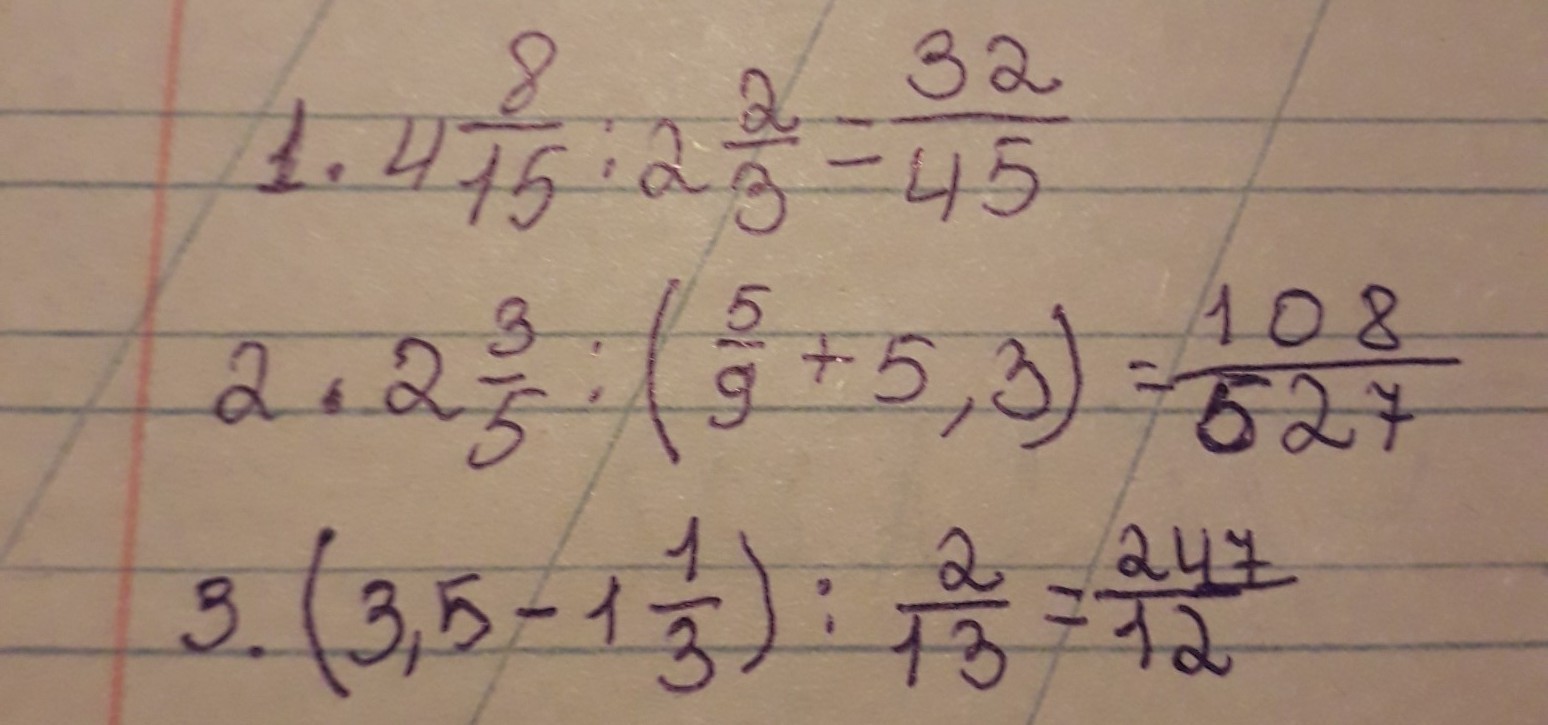 1. 4 8/15 : 2 2/3 = 32/45
2. 2 3/5 : (5/9 + 5,3) = 108/527
3. (3,5 - 1 1/3) : 2/13 = 247/12